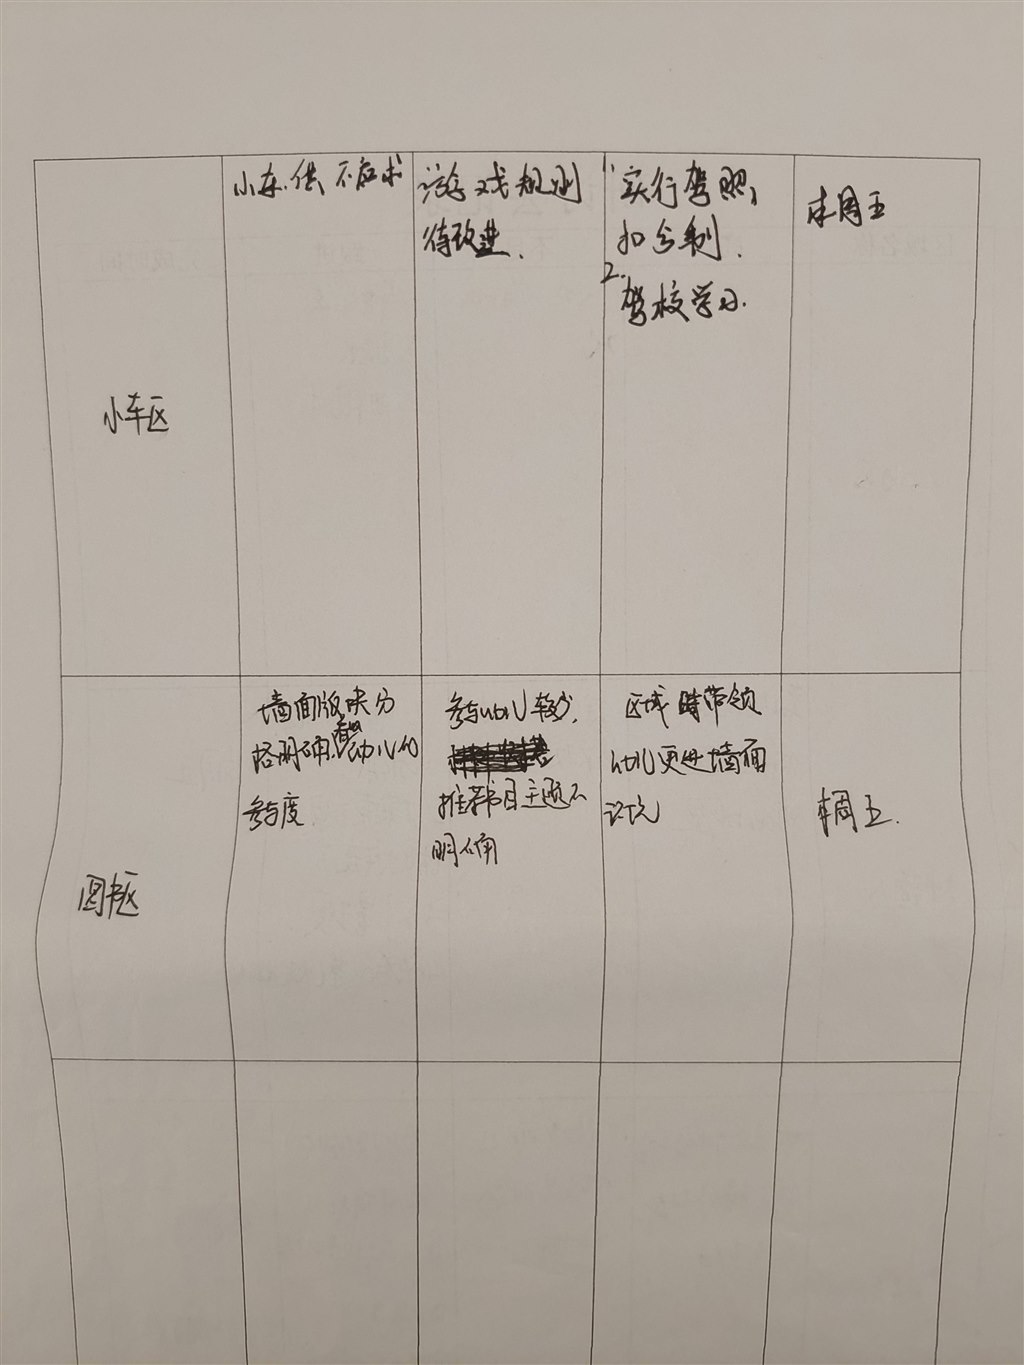 小车区
小车供不应求
游戏规则
待改进.
1.实行驾照,
扣分制.
2.驾校学习.
本周五
图书区
墙面版块分
格明确.有幼儿的
参与度
参与幼儿较少,
推荐书目主题不
明确
区域时带领
幼儿更进墙面
本周五.